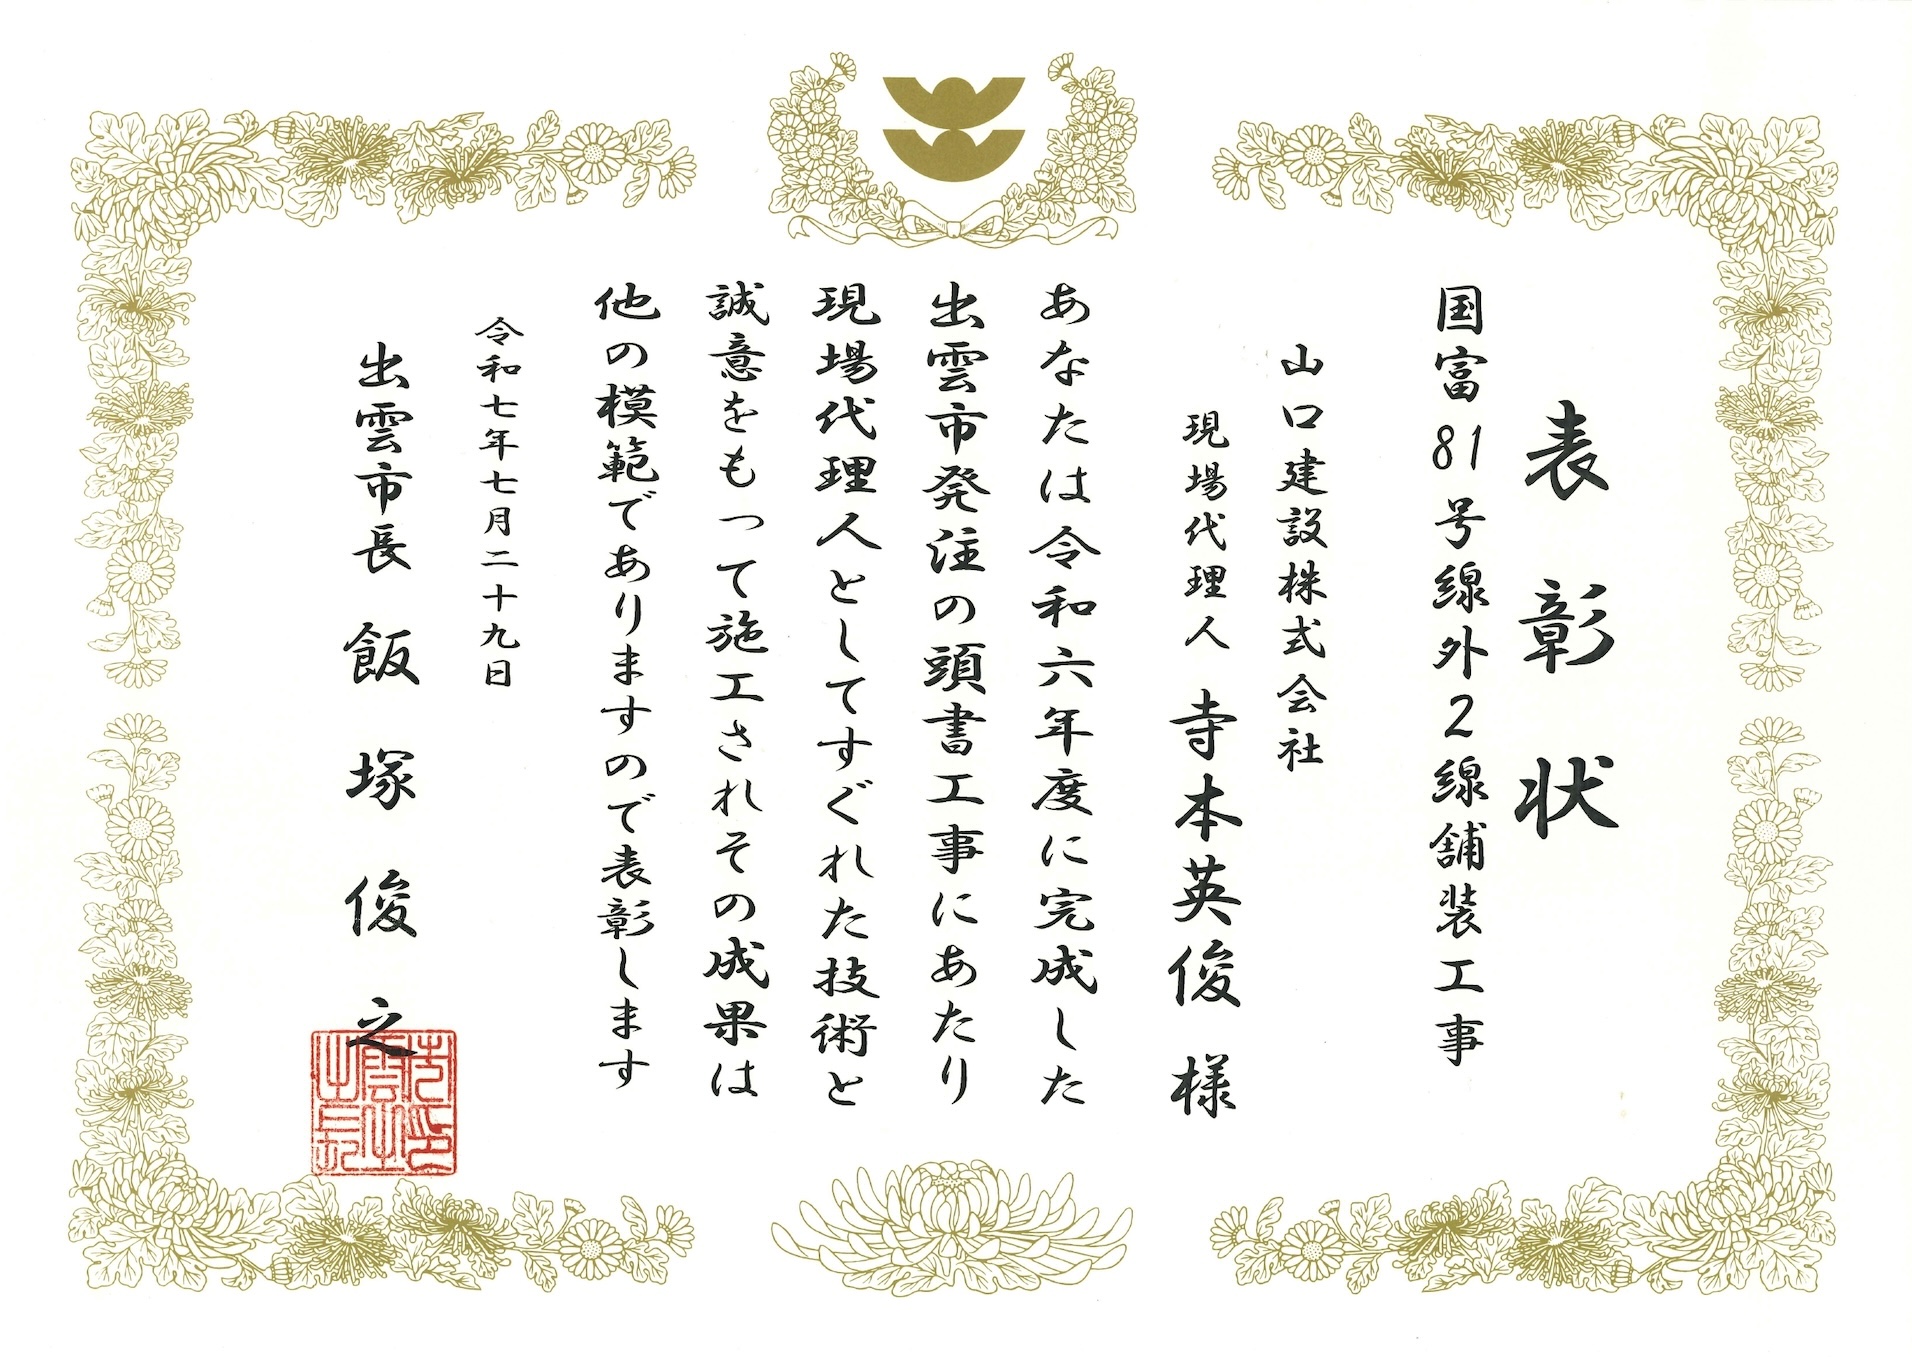 表彰状
国富81号線外2線舗装工事
山口建設株式会社
現場代理人 寺本英俊 様
あなたは令和六年度に完成した
出雲市発注の頭書工事にあたり
現場代理人としてすぐれた技術と
誠意をもって施工されその成果は
他の模範でありますので表彰します
令和七年七月二十九日
出雲市長 飯塚俊之